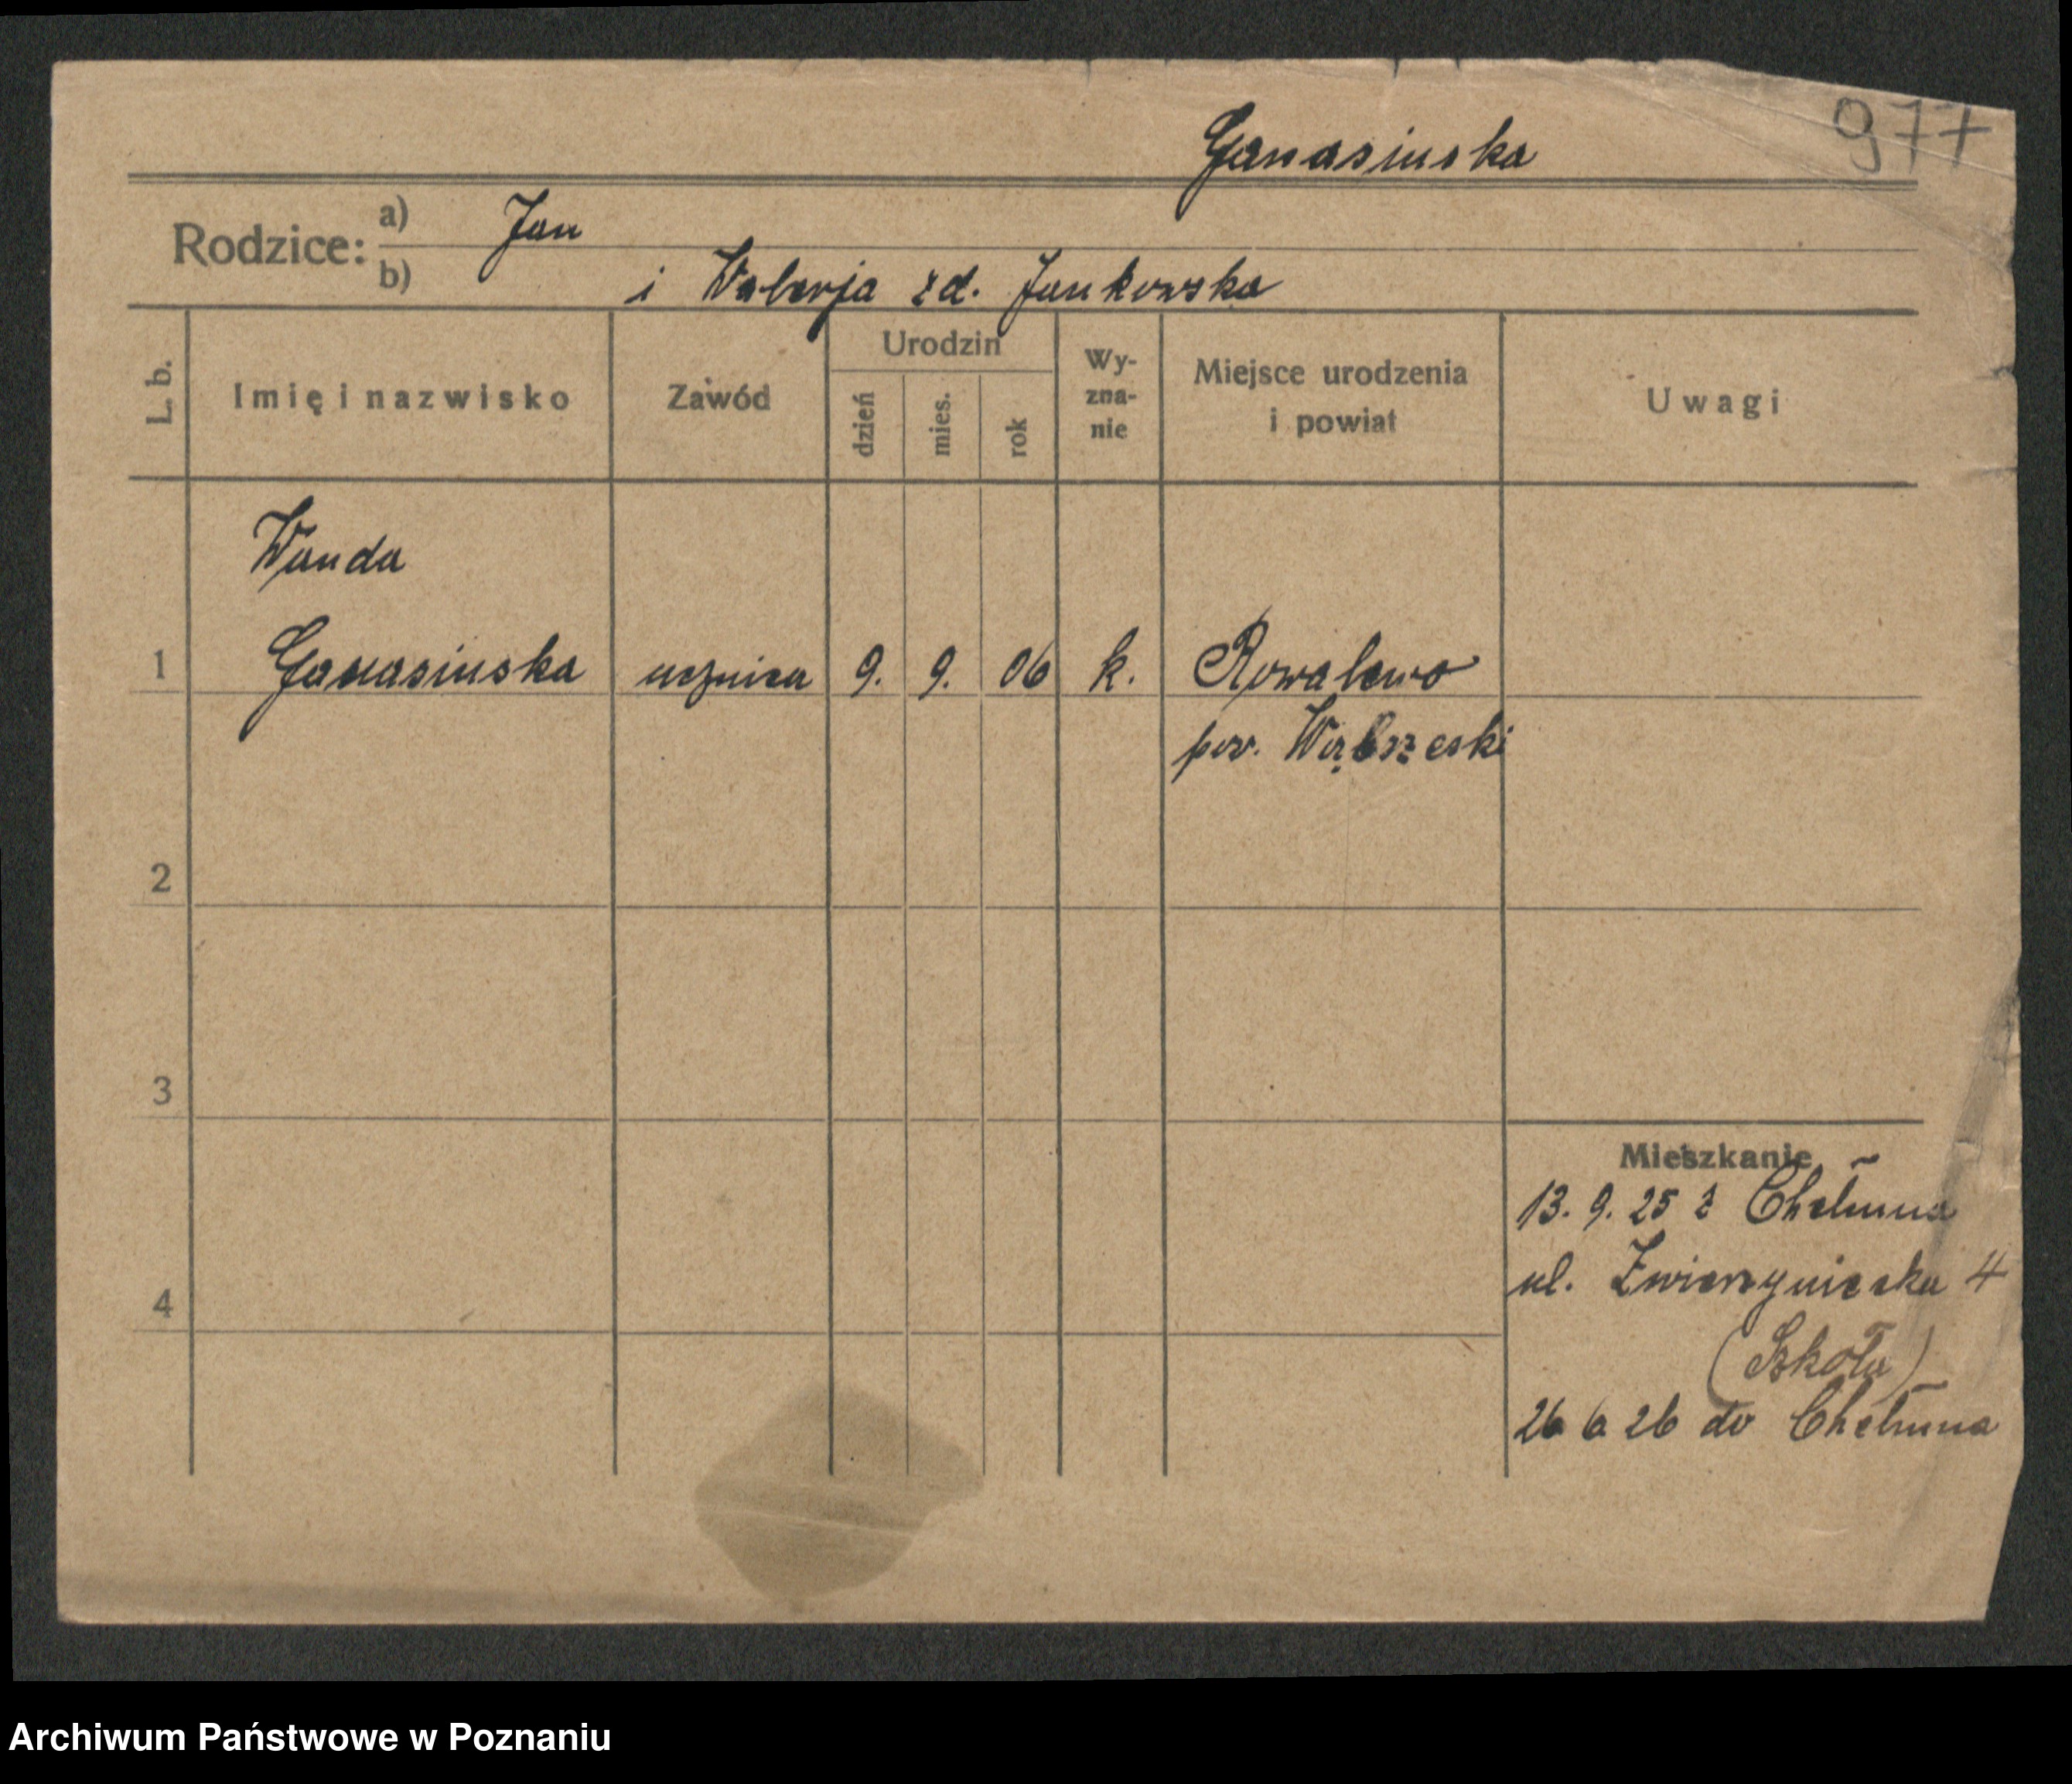 977
Ganasinska
Rodzice: a) Jan
b) i Walerja zd. Jankowska
L. b. Imię i nazwisko Zawód Urodzin dzień mies. rok Wyznanie Miejsce urodzenia i powiat Uwagi
Wanda
1 Ganasinska ucznica 9. 9. 06 k. Kowalewo
pow. Wąbrzeski
2
3
Mieszkanie
13. 9. 25 z Chełmna
ul. Zwierzyniecka 4
4
(Szkoła)
26 6 26 do Chełmna
Archiwum Państwowe w Poznaniu